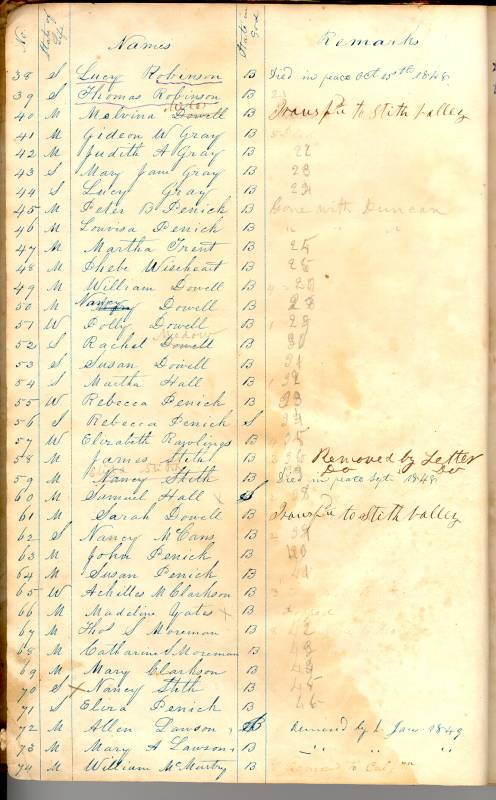 No. State of Life Names State in Grd. Remarks
38 S Lucy Robinson B Died in peace Oct 15th 1848
39 S Thomas Robinson B 21
40 M Melvina Dowell B Transfd to Stith valley
41 M Gideon W Gray B
42 M Judith A Gray B 22
43 S Mary Jane Gray B 23
44 S Lucy Gray B 24
45 M Peter B Penick B Gone with Duncan
46 M Louisa Penick B " " "
47 M Martha Trent B 25
48 M Phebe Wiseheart B 26
49 M William Dowell B 27
50 M Nancy Dowell B 28
51 W Polly Dowell B 29
52 S Rachel Dowell B 30
53 S Susan Dowell B 31
54 S Martha Hall B 32
55 W Rebecca Penick B 33
56 S Rebecca Penick S 34
57 W Elizabeth Rawlings B 35
58 M James Stith B 36 Removed by Letter
Do Do
59 M Nancy Stith B Died in peace Sept. 1848
60 M Samuel Hall x S 38
61 M Sarah Dowell B Transfd to Stith valley
62 S Nancy McCans B 39
63 M John Penick B 40
64 M Susan Penick B 41
65 W Achilles M Clarkson B
66 M Madeline Yates x B
67 M Thos S Moreman B 42
68 M Catharine S Moreman B 43
69 M Mary Clarkson B 44
70 S x Nancy Stith B 45
71 S Eliza Penick B 46
72 M Allen Lawson B Removed by L. Jan. 1849
73 M Mary A Lawson B " " " "
74 M William McMurtry B Removed to